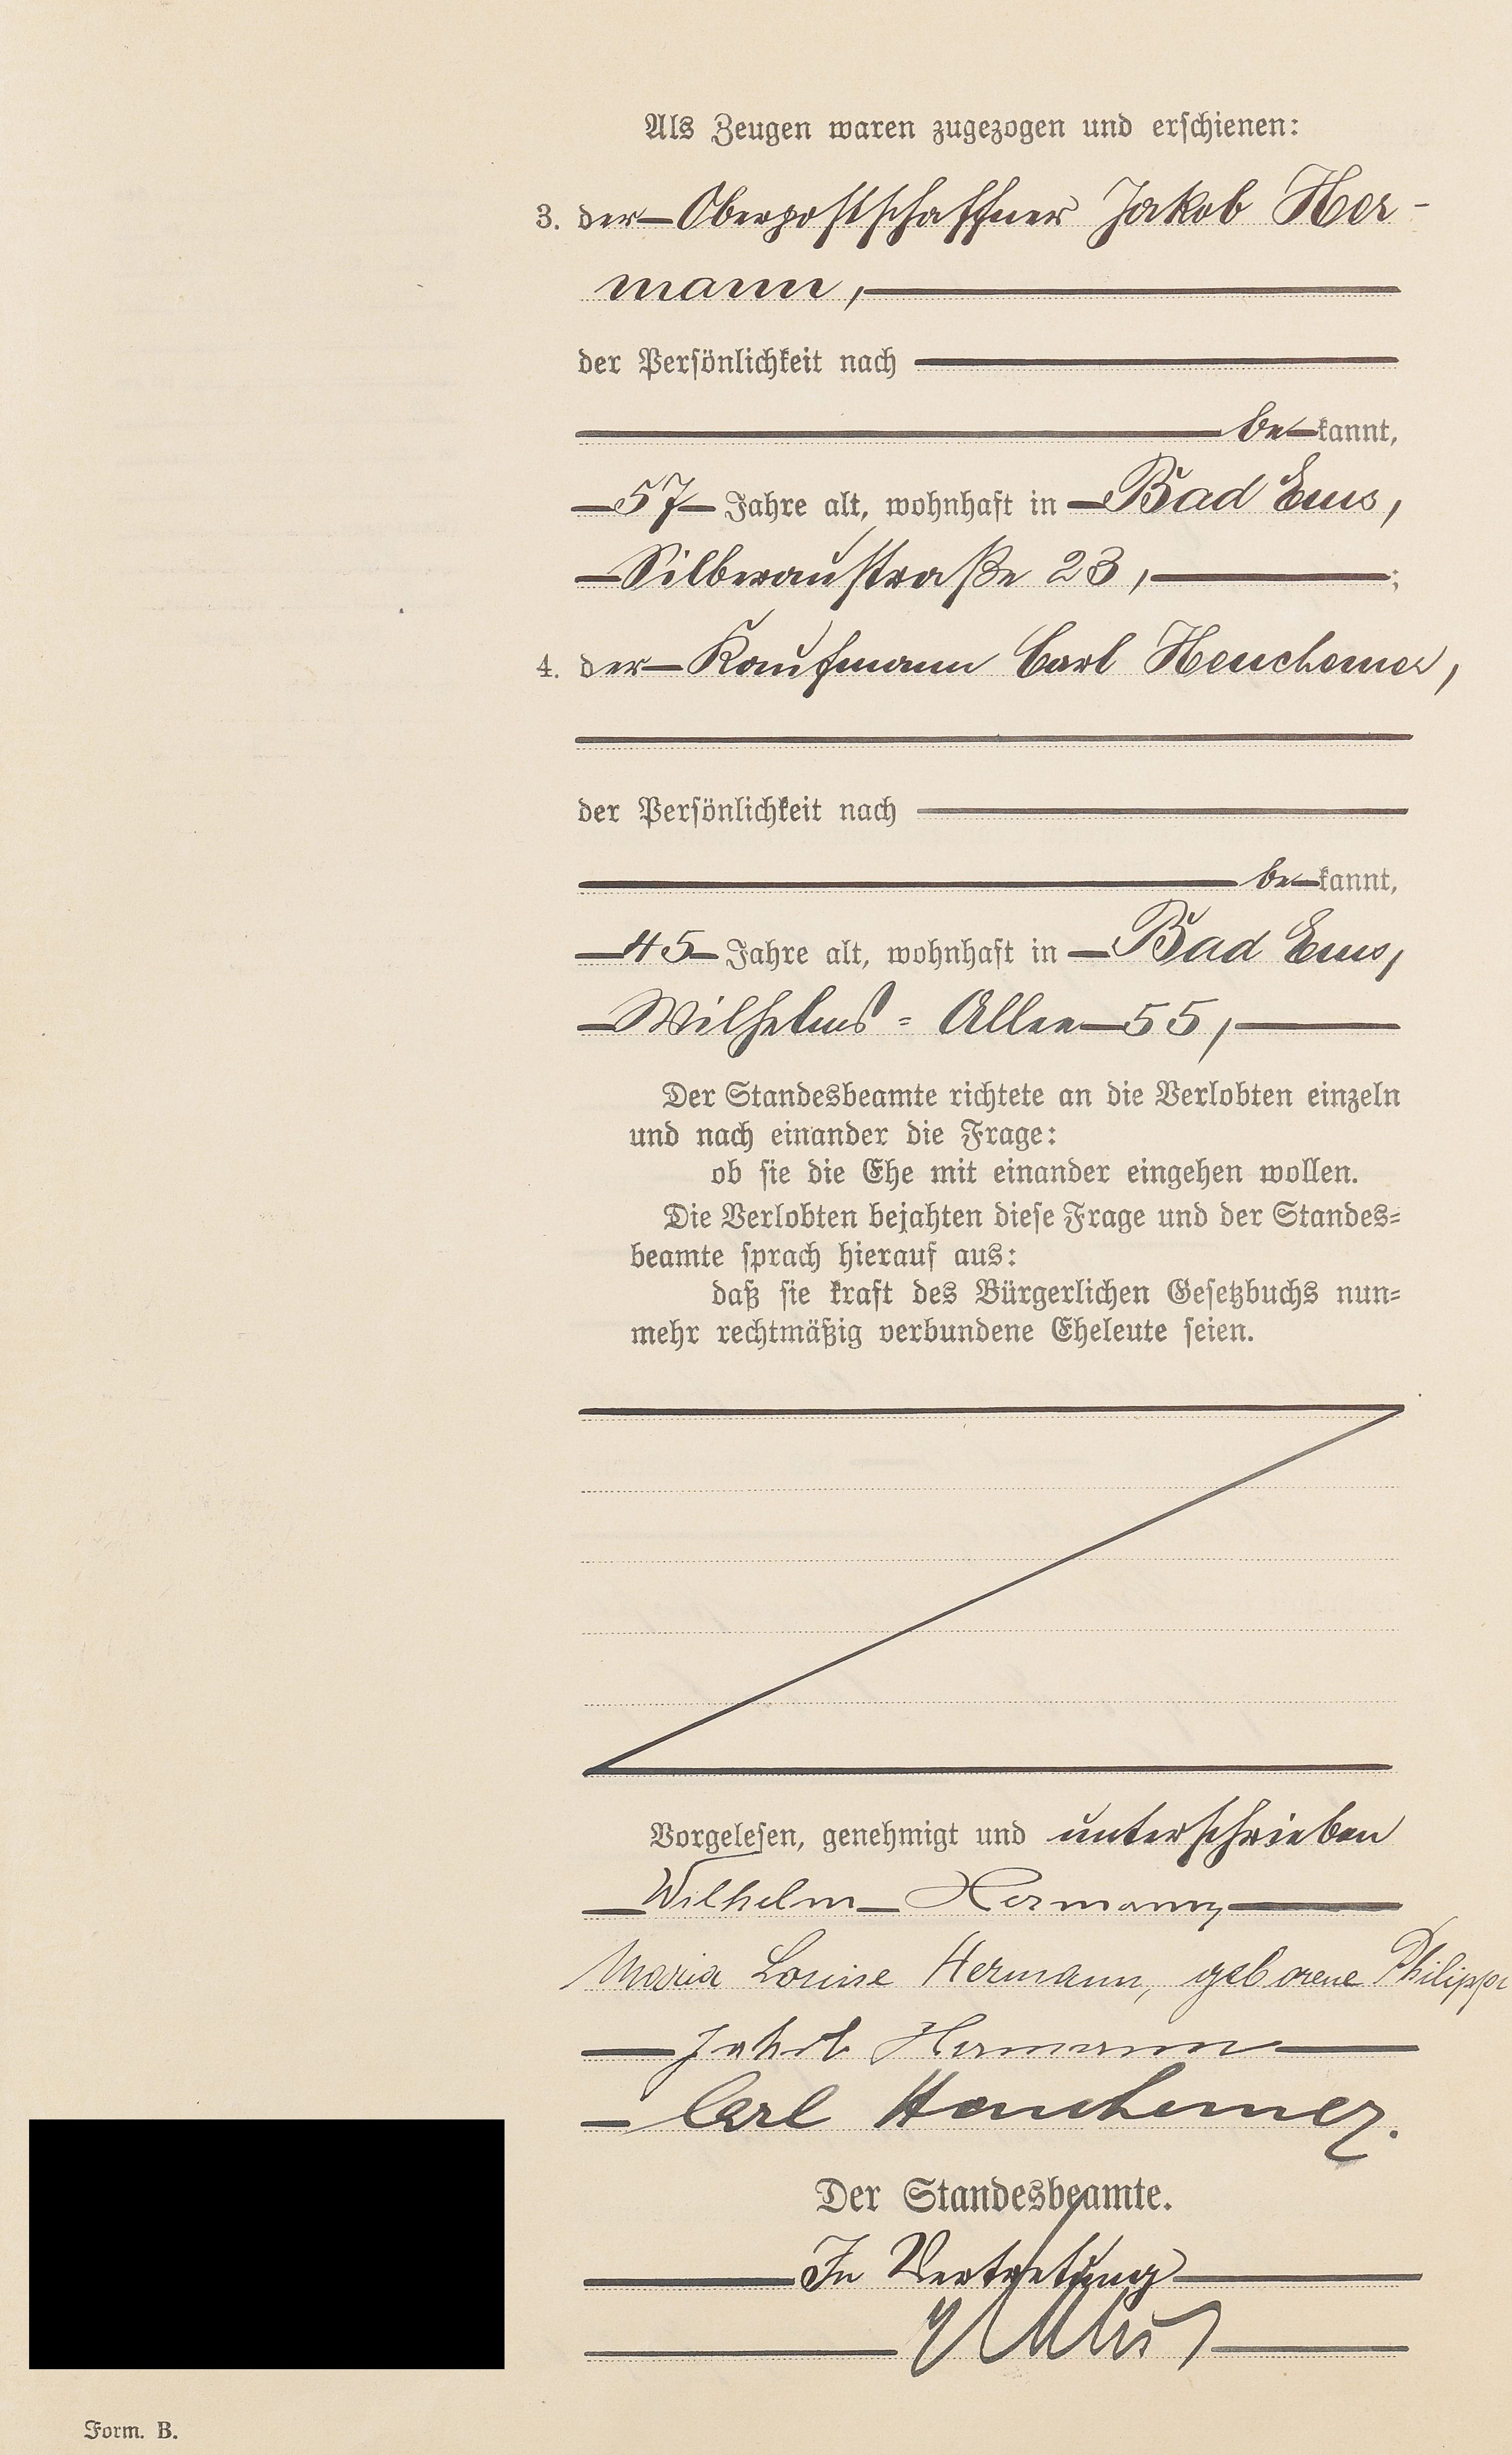 Als Zeugen waren zugezogen und erschienen:
3. der Oberpostschaffner Jakob Her-
mann,
der Persönlichkeit nach
be kannt,
57 Jahre alt, wohnhaft in Bad Ems,
Silberaustraße 23, ;
4. der Kaufmann Carl Heuchemer,
der Persönlichkeit nach
be kannt,
45 Jahre alt, wohnhaft in Bad Ems,
Wilhelms = Allee 55,
Der Standesbeamte richtete an die Verlobten einzeln
und nach einander die Frage:
ob sie die Ehe mit einander eingehen wollen.
Die Verlobten bejahten diese Frage und der Standes=
beamte sprach hierauf aus:
daß sie kraft des Bürgerlichen Gesetzbuchs nun=
mehr rechtmäßig verbundene Eheleute seien.
Vorgelesen, genehmigt und unterschrieben
Wilhelm Hermann
Maria Louise Hermann, geborene Philippi
Jakob Hermann
Carl Heuchemer.
Der Standesbeamte.
In Vertretung
Form. B.